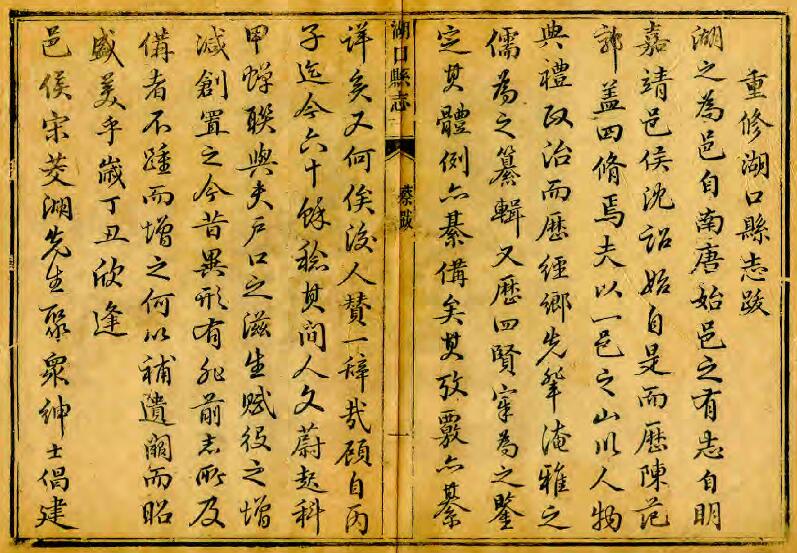 重修湖口縣志跋
湖之為邑自南唐始邑之有志自明
嘉靖邑侯沈詔始自是而歷陳范
郭蓋四脩焉夫以一邑之山川人物
典禮政治而歷經鄉先輩淹雅之
儒為之纂輯又歷四賢宰為之鑒
定其體例亦綦備矣其攷覈亦綦
湖口縣志
蔡跋
一
詳矣又何俟後人贊一辭哉顧自丙
子迄今六十餘稔其間人文蔚起科
甲蟬聯與夫戶口之滋生賦役之增
減創置之今昔異形有非前志所及
備者不踵而增之何以補遺闕而昭
盛美乎歲丁丑欣逢
邑侯宋茭湖先生聚眾紳士倡建